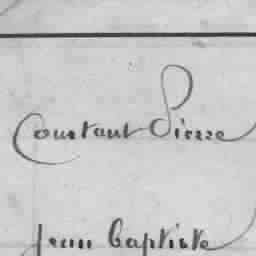 Constant Pierre
Jean Baptiste